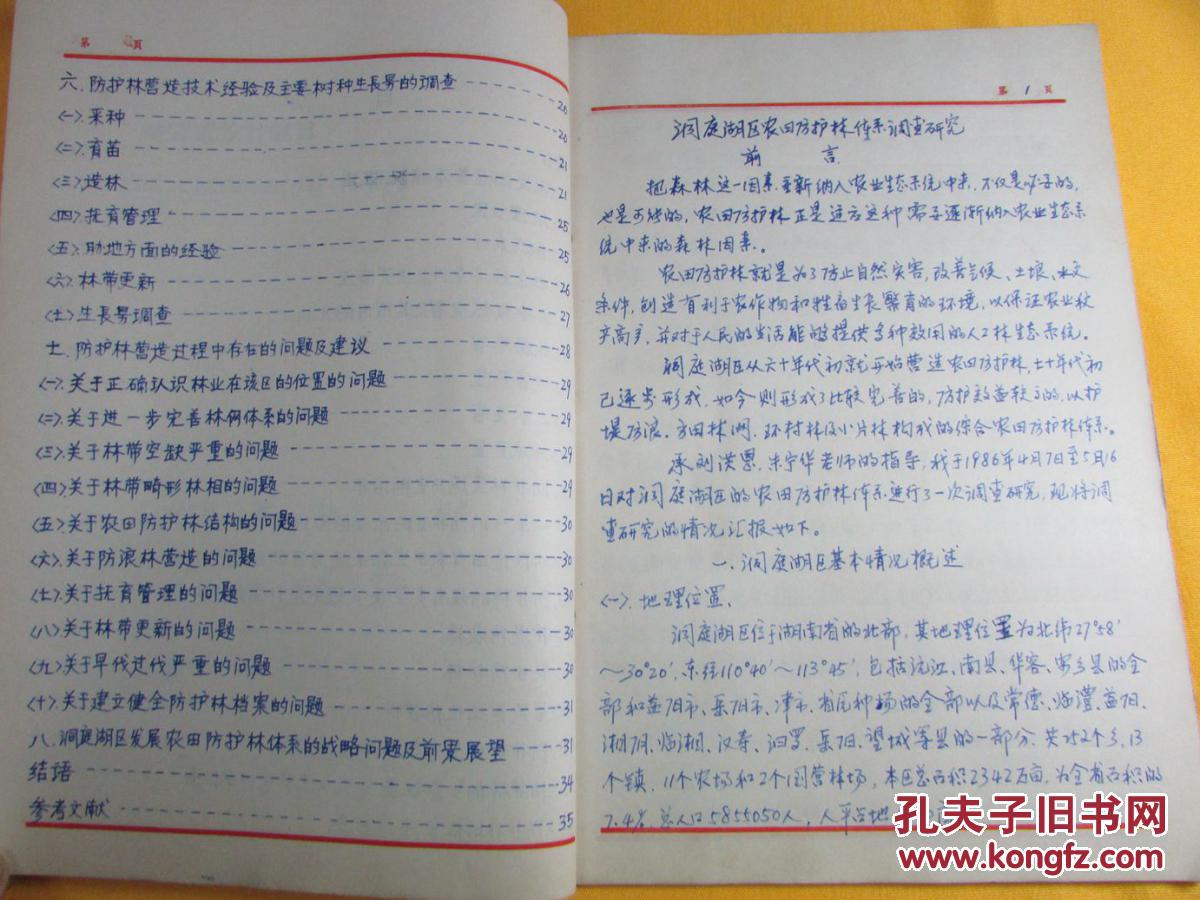 第 頁
六.防护林营造技术经验及主要树种生長势的调查 20
〈一〉.采种 20
〈二〉.育苗 21
〈三〉.造林 21
〈四〉.抚育管理 25
〈五〉.助地方面的经验 25
〈六〉.林带更新 26
〈七〉.生長势调查 27
七.防护林营造过程中存在的问题及建议 28
〈一〉.关于正确认识林业在该区的位置的问题 29
〈二〉.关于进一步完善林网体系的问题 29
〈三〉.关于林带空缺严重的问题 29
〈四〉.关于林带畸形林相的问题 29
〈五〉.关于农田防护林结构的问题 30
〈六〉.关于防浪林营造的问题 30
〈七〉.关于抚育管理的问题 30
〈八〉关于林带更新的问题 30
〈九〉关于早伐过伐严重的问题 30
〈十〉.关于建立健全防护林档案的问题 31
八.洞庭湖区发展农田防护林体系的战略问题及前景展望 31
结语 34
参考文献 35
第 1 頁
洞庭湖区农田防护林体系调查研究
前 言
把森林这一因素重新纳入农业生态系统中来,不仅是必要的,
也是可能的,农田防护林正是适应这种需要逐渐纳入农业生态系
统中来的森林因素。
农田防护林就是为了防止自然灾害,改善气候、土壤、水文
条件,创造有利于农作物和牲畜生长繁育的环境,以保证农业稳
产高产,并对于人民的生活能够提供多种效用的人工林生态系统。
洞庭湖区从六十年代初就开始营造农田防护林,七十年代初
已逐步形成.如今则形成了比较完善的,防护效益较高的,以护
堤防浪.方田林网.环村林及小片林构成的综合农田防护林体系。
承刘洪恩.朱宁华老师的指导,我于1986年4月7日至5月16
日对洞庭湖区的农田防护林体系进行了一次调查研究,现将调
查研究的情况汇报如下。
一.洞庭湖区基本情况概述
〈一〉.地理位置.
洞庭湖区位于湖南省的北部,其地理位置为北纬27°58′
～30°20′,东经110°40′～113°45′,包括沅江、南县、华容、安乡县的全
部和益阳市、岳阳市、津市、省原种场的全部以及常德、临澧、益阳、
湘阴、临湘、汉寿、汨罗、岳阳、望城等县的一部分.共252个乡,13
个镇,11个农场和2个国营林场,本区总面积2342万亩,为全省面积的
7.4%,总人口5855050人,人平占地
孔夫子旧书网
www.kongfz.com